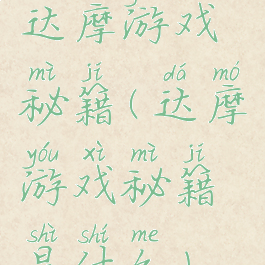 达摩游戏
mì jí dá mó
秘籍(达摩
yóu xì mì jí
游戏秘籍
shì shí me
是什么)